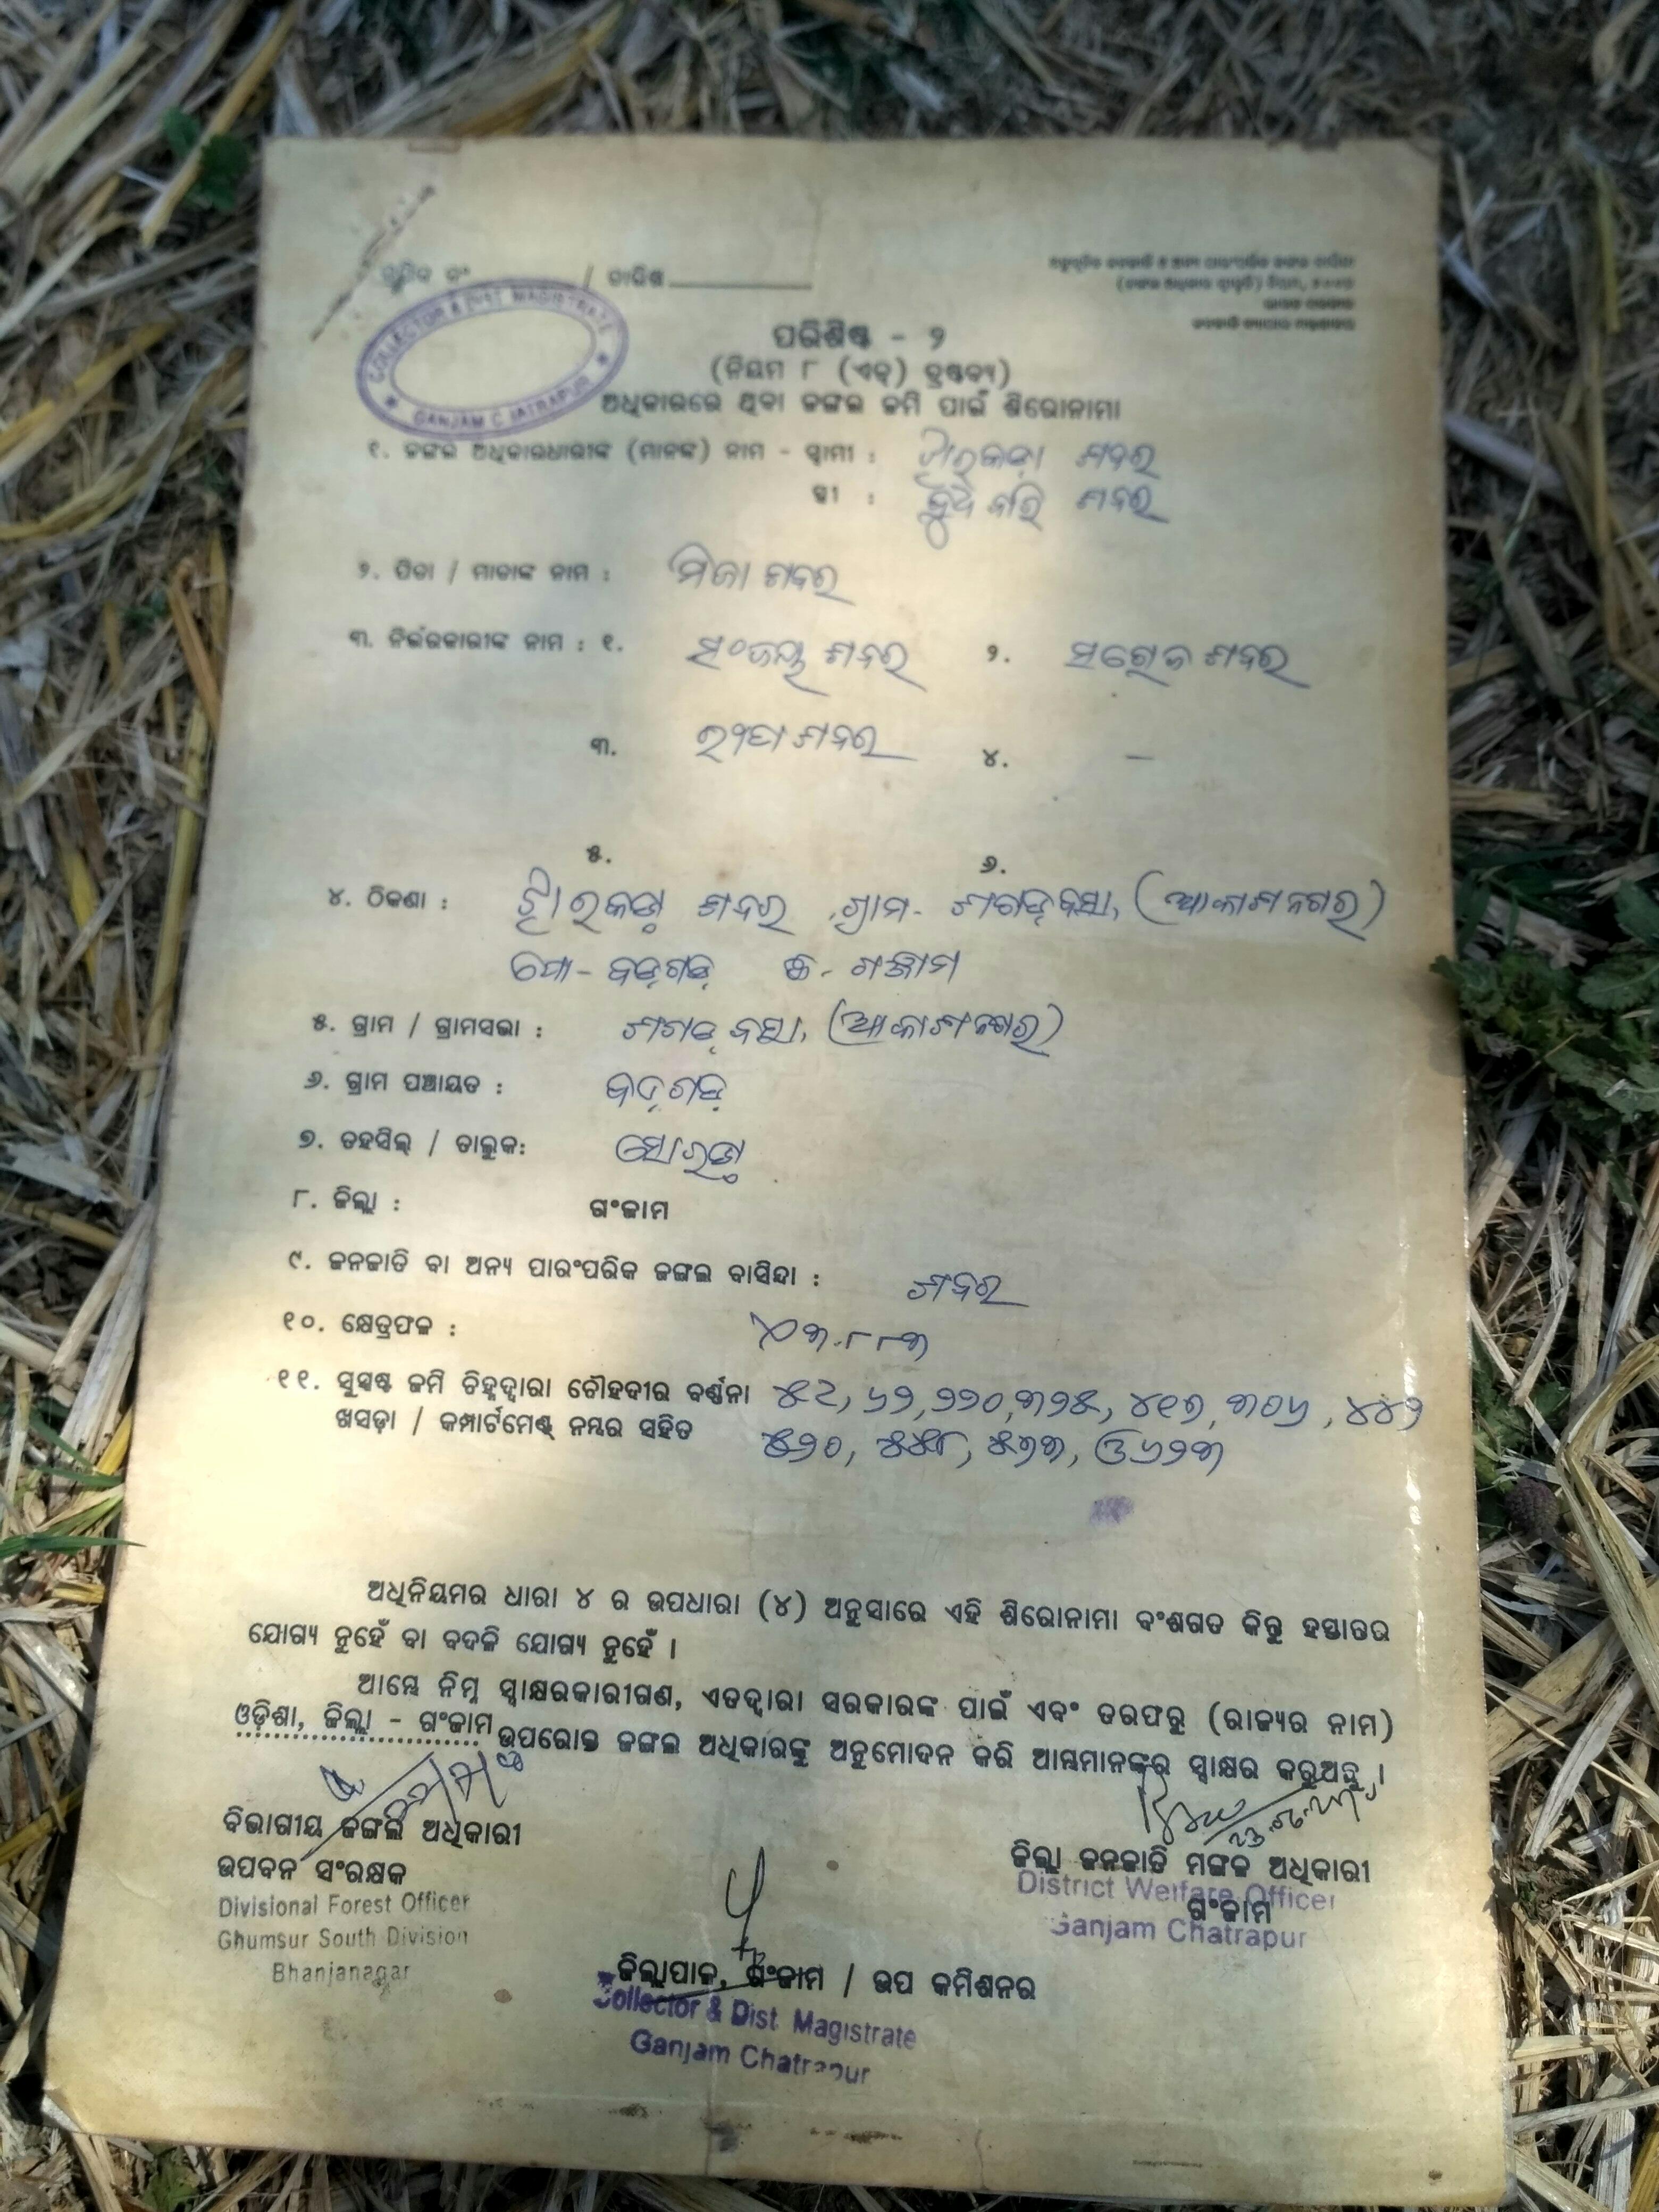 କ୍ରମିକ ନଂ / ତାରିଖ
COLLECTOR & DIST. MAGISTRATE
GANJAM CHATRAPUR
ପରିଶିଷ୍ଟ - ୨
(ନିୟମ ୮ (ଏଚ୍) ଦ୍ରଷ୍ଟବ୍ୟ)
ଅଧିକାରରେ ଥିବା ଜଙ୍ଗଲ ଜମି ପାଇଁ ଶିରୋନାମା
୧. ଜଙ୍ଗଲ ଅଧିକାରଧାରୀଙ୍କ (ମାନଙ୍କ) ନାମ - ସ୍ଵାମୀ : ଶବର
ସ୍ତ୍ରୀ : ଶବର
୨. ପିତା / ମାତାଙ୍କ ନାମ : ମିଜା ଶବର
୩. ନିର୍ଭରକାରୀଙ୍କ ନାମ : ୧. ସଂଜୟ ଶବର ୨. ସରୋଜ ଶବର
୩. ଶବର ୪. —
୫. ୬.
୪. ଠିକଣା : ଶବର ଗ୍ରାମ- (ଆକାଶନଗର)
ପୋ- ବଡ଼ଗଡ଼ ଗଞ୍ଜାମ
୫. ଗ୍ରାମ / ଗ୍ରାମସଭା : (ଆକାଶନଗର)
୬. ଗ୍ରାମ ପଞ୍ଚାୟତ : ବଡ଼ଗଡ଼
୭. ତହସିଲ୍ / ତାଲୁକ: ସୋରଡ଼ା
୮. ଜିଲ୍ଲା : ଗଂଜାମ
୯. ଜନଜାତି ବା ଅନ୍ୟ ପାରଂପରିକ ଜଙ୍ଗଲ ବାସିନ୍ଦା : ଶବର
୧୦. କ୍ଷେତ୍ରଫଳ :
୧୧. ସୁସ୍ପଷ୍ଟ ଜମି ଚିହ୍ନଦ୍ୱାରା ଚୌହଦୀର ବର୍ଣ୍ଣନା ୬୨, ୨୨୦, ୩୨୫, ୪୧୭, ୩୦୬, ୪୪୨
ଖସଡ଼ା / କମ୍ପାର୍ଟମେଣ୍ଟ୍ ନମ୍ବର ସହିତ ୫୨୦, ୫୫୮, ୫୭୩, ଓ ୬୨୩
ଅଧିନିୟମର ଧାରା ୪ ର ଉପଧାରା (୪) ଅନୁସାରେ ଏହି ଶିରୋନାମା ବଂଶଗତ କିନ୍ତୁ ହସ୍ତାନ୍ତର
ଯୋଗ୍ୟ ନୁହେଁ ବା ବଦଳି ଯୋଗ୍ୟ ନୁହେଁ ।
ଆମ୍ଭେ ନିମ୍ନ ସ୍ୱାକ୍ଷରକାରୀଗଣ, ଏତଦ୍ୱାରା ସରକାରଙ୍କ ପାଇଁ ଏବଂ ତରଫରୁ (ରାଜ୍ୟର ନାମ)
ଓଡ଼ିଶା, ଜିଲ୍ଲା - ଗଂଜାମ ଉପରୋକ୍ତ ଜଙ୍ଗଲ ଅଧିକାରଙ୍କୁ ଅନୁମୋଦନ କରି ଆମ୍ଭମାନଙ୍କର ସ୍ୱାକ୍ଷର କରୁଅଛୁ ।
ବିଭାଗୀୟ ଜଙ୍ଗଲ ଅଧିକାରୀ
ଉପବନ ସଂରକ୍ଷକ
Divisional Forest Officer
Ghumsur South Division
Bhanjanagar
ଜିଲ୍ଲା ଜନଜାତି ମଙ୍ଗଳ ଅଧିକାରୀ
District Welfare Officer
ଗଂଜାମ
Ganjam Chatrapur
ଜିଲ୍ଲାପାଳ, ଗଂଜାମ / ଉପ କମିଶନର
Collector & Dist. Magistrate
Ganjam Chatrapur